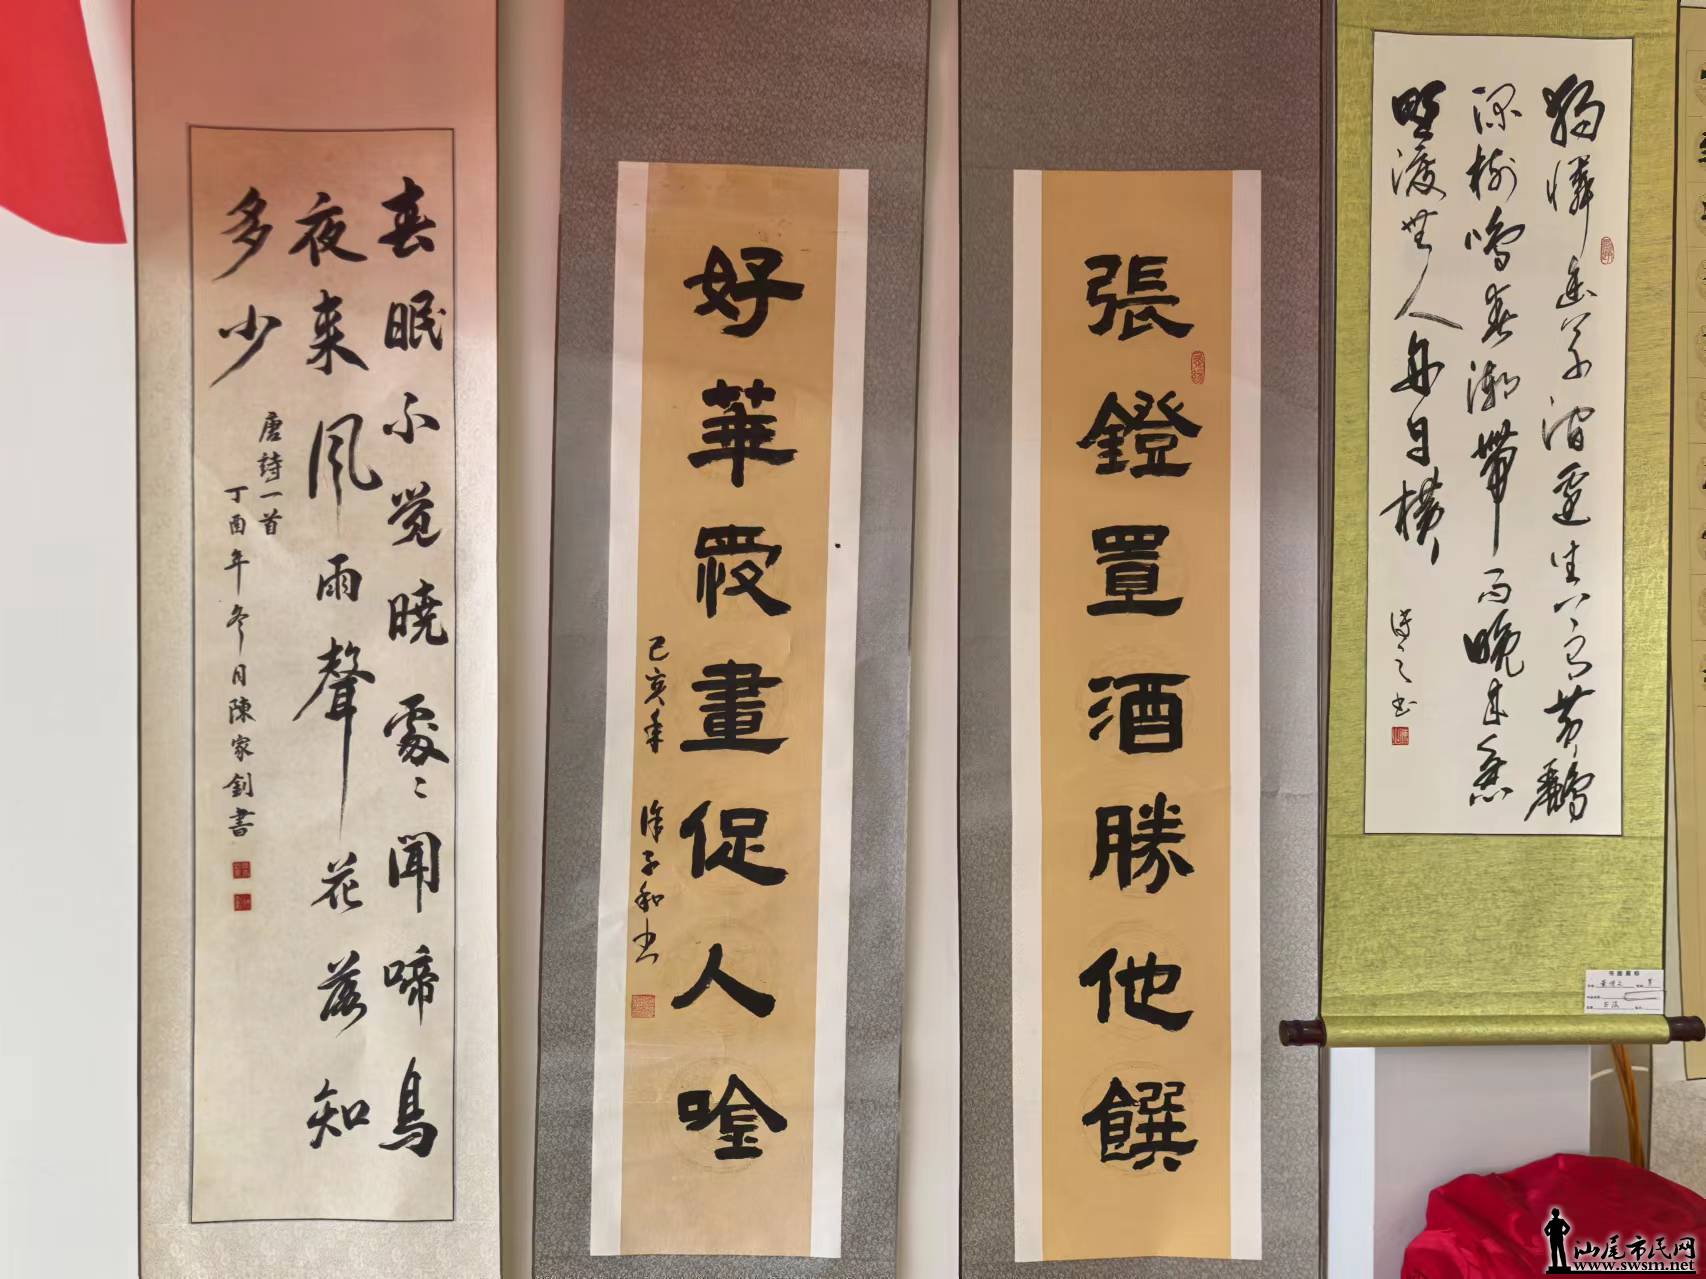 獨憐幽草澗邊生上有黄鸝
深樹鳴春潮帶雨晚來急
野渡無人舟自横
張鐙置酒勝他饌
好華畫促人唫
己亥年 徐子和书
春眠不觉曉處々聞啼鳥
夜来風雨聲花落知
多少
唐詩一首
丁酉年冬月陳家釗書
汕尾市民网
www.swsm.net